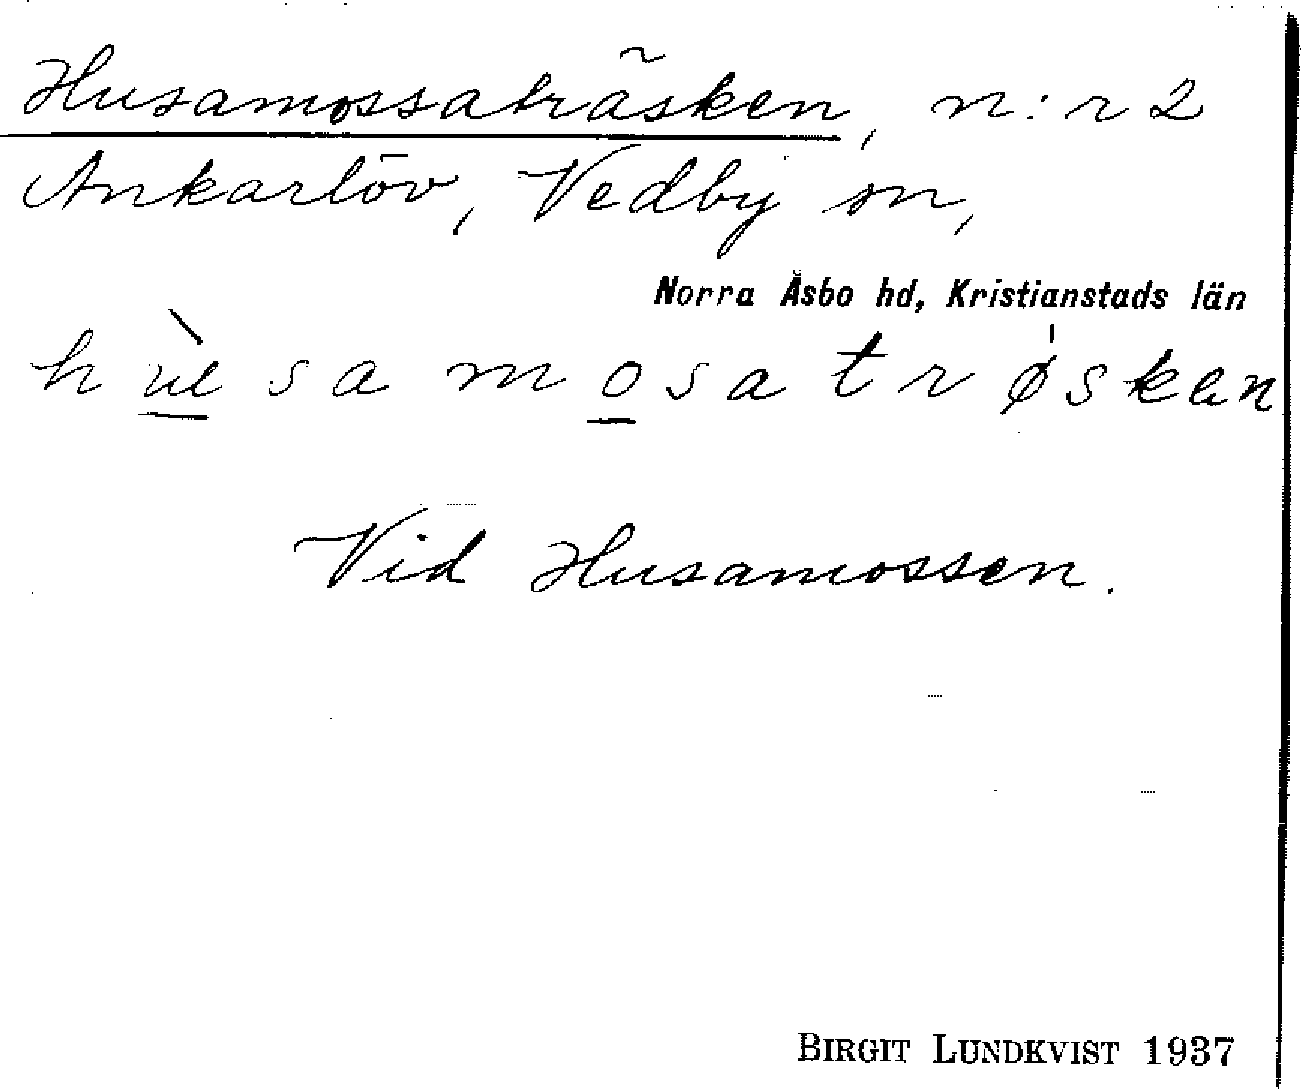 Husamossaträsken, n:r 2
Ankarlöv, Vedby sn,
Norra Åsbo hd, Kristianstads län
hùesa mosatrøsken
Vid Husamossen.
BIRGIT LUNDKVIST 1937